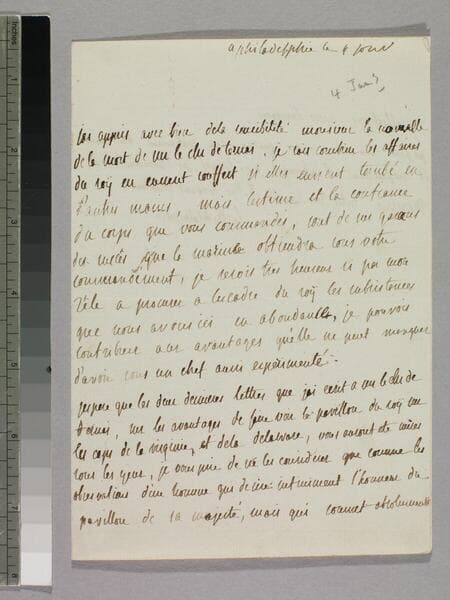 a philadelphie le 4 janv
4 Jan
jai appris avec bien de la sensibilité monsieur la nouvelle
de la mort de mr le ch de ternai. je sais combien les affaires
du roy en eussent souffert si elles eussent tombé en
d'autres mains, mais lestime et la confiance
du corps que vous commandés, sont de surs garans
des succès que la marine obtiendra sous votre
commandement, je serois tres heureux si par mon
zèle a procurer a lescadre du roy les subsistances
que nous avons ici en abondance, je pouvois
contribuer aux avantages qu'elle ne peut manquer
d'avoir sous un chef aussi experimenté.
jespere que les deux dernieres lettres que jai ecrit a mr le ch de
ternai, sur les avantages de faire voir le pavillon du roy sur
les caps de la virginie, et de la delaware, vous auront été mises
sous les yeux, je vous prie de ne les considerer que comme les
observations d'un homme qui desire intimement l'honneur du
pavillon de sa majesté, mais qui connoit absolument